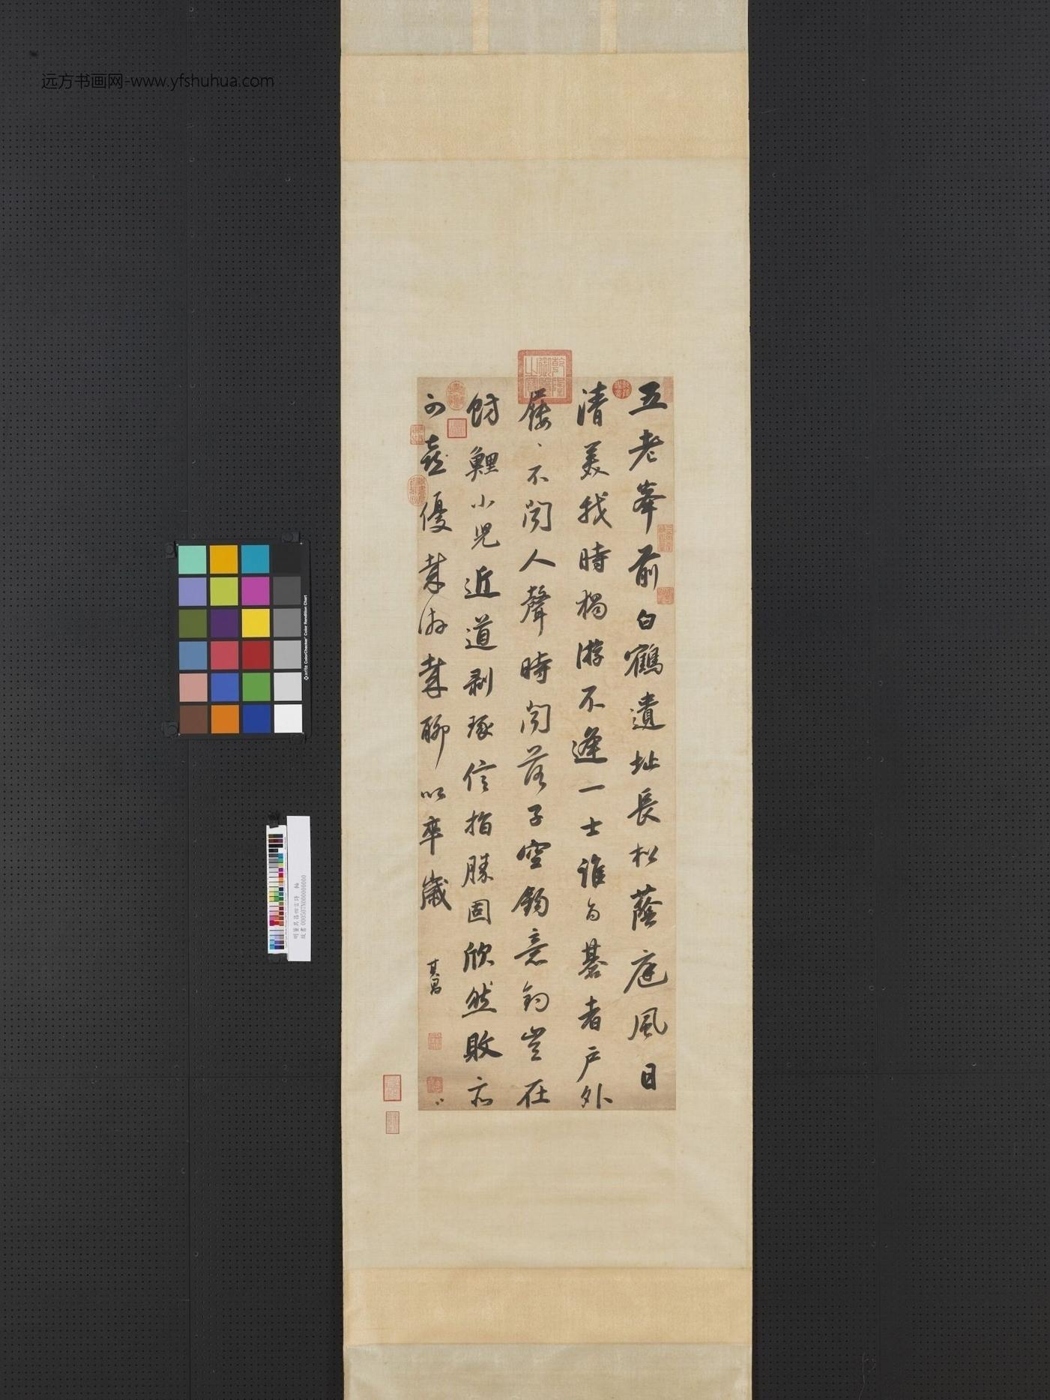 远方书画网-www.yfshuhua.com
五老峯前白鶴遺址長松蔭庭風日
清美我時獨游不逢一士誰為棊者戶外
屨不聞人聲時聞落子空鉤意釣豈在
魴鯉小兒近道剥琢信指勝固欣然敗亦
可喜優哉游哉聊以卒歲
其昌